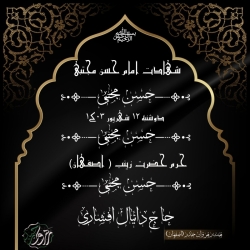 بسم الله الرحمن الرحیم
شهادت امام حسن مجتبی
حسن مجتبی
دوشنبه ۱۲ شهریور ۱۴۰۳
حسن مجتبی
حرم حضرت زینب (اصفهان)
حسن مجتبی
حاج دانیال افشاری